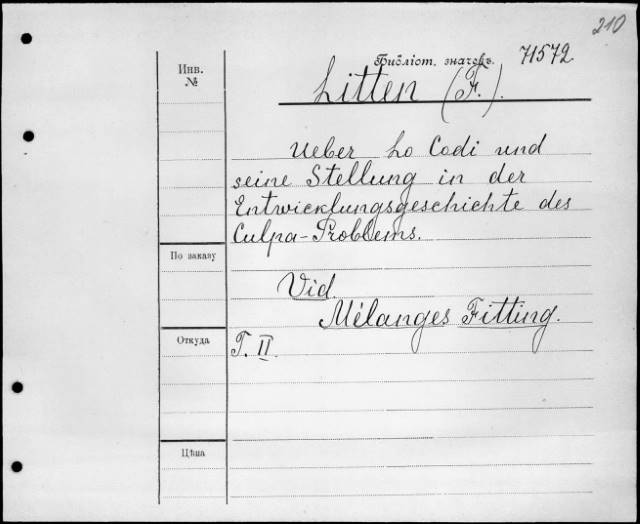 210
Инв.
№
Библіот. значекъ. 71572
Litten (F.).
Ueber Lo Codi und
seine Stellung in der
Entwicklungsgeschichte des
Culpa-Problems.
По заказу
Vid.
Mélanges Fitting.
Откуда
T. II.
Цѣна